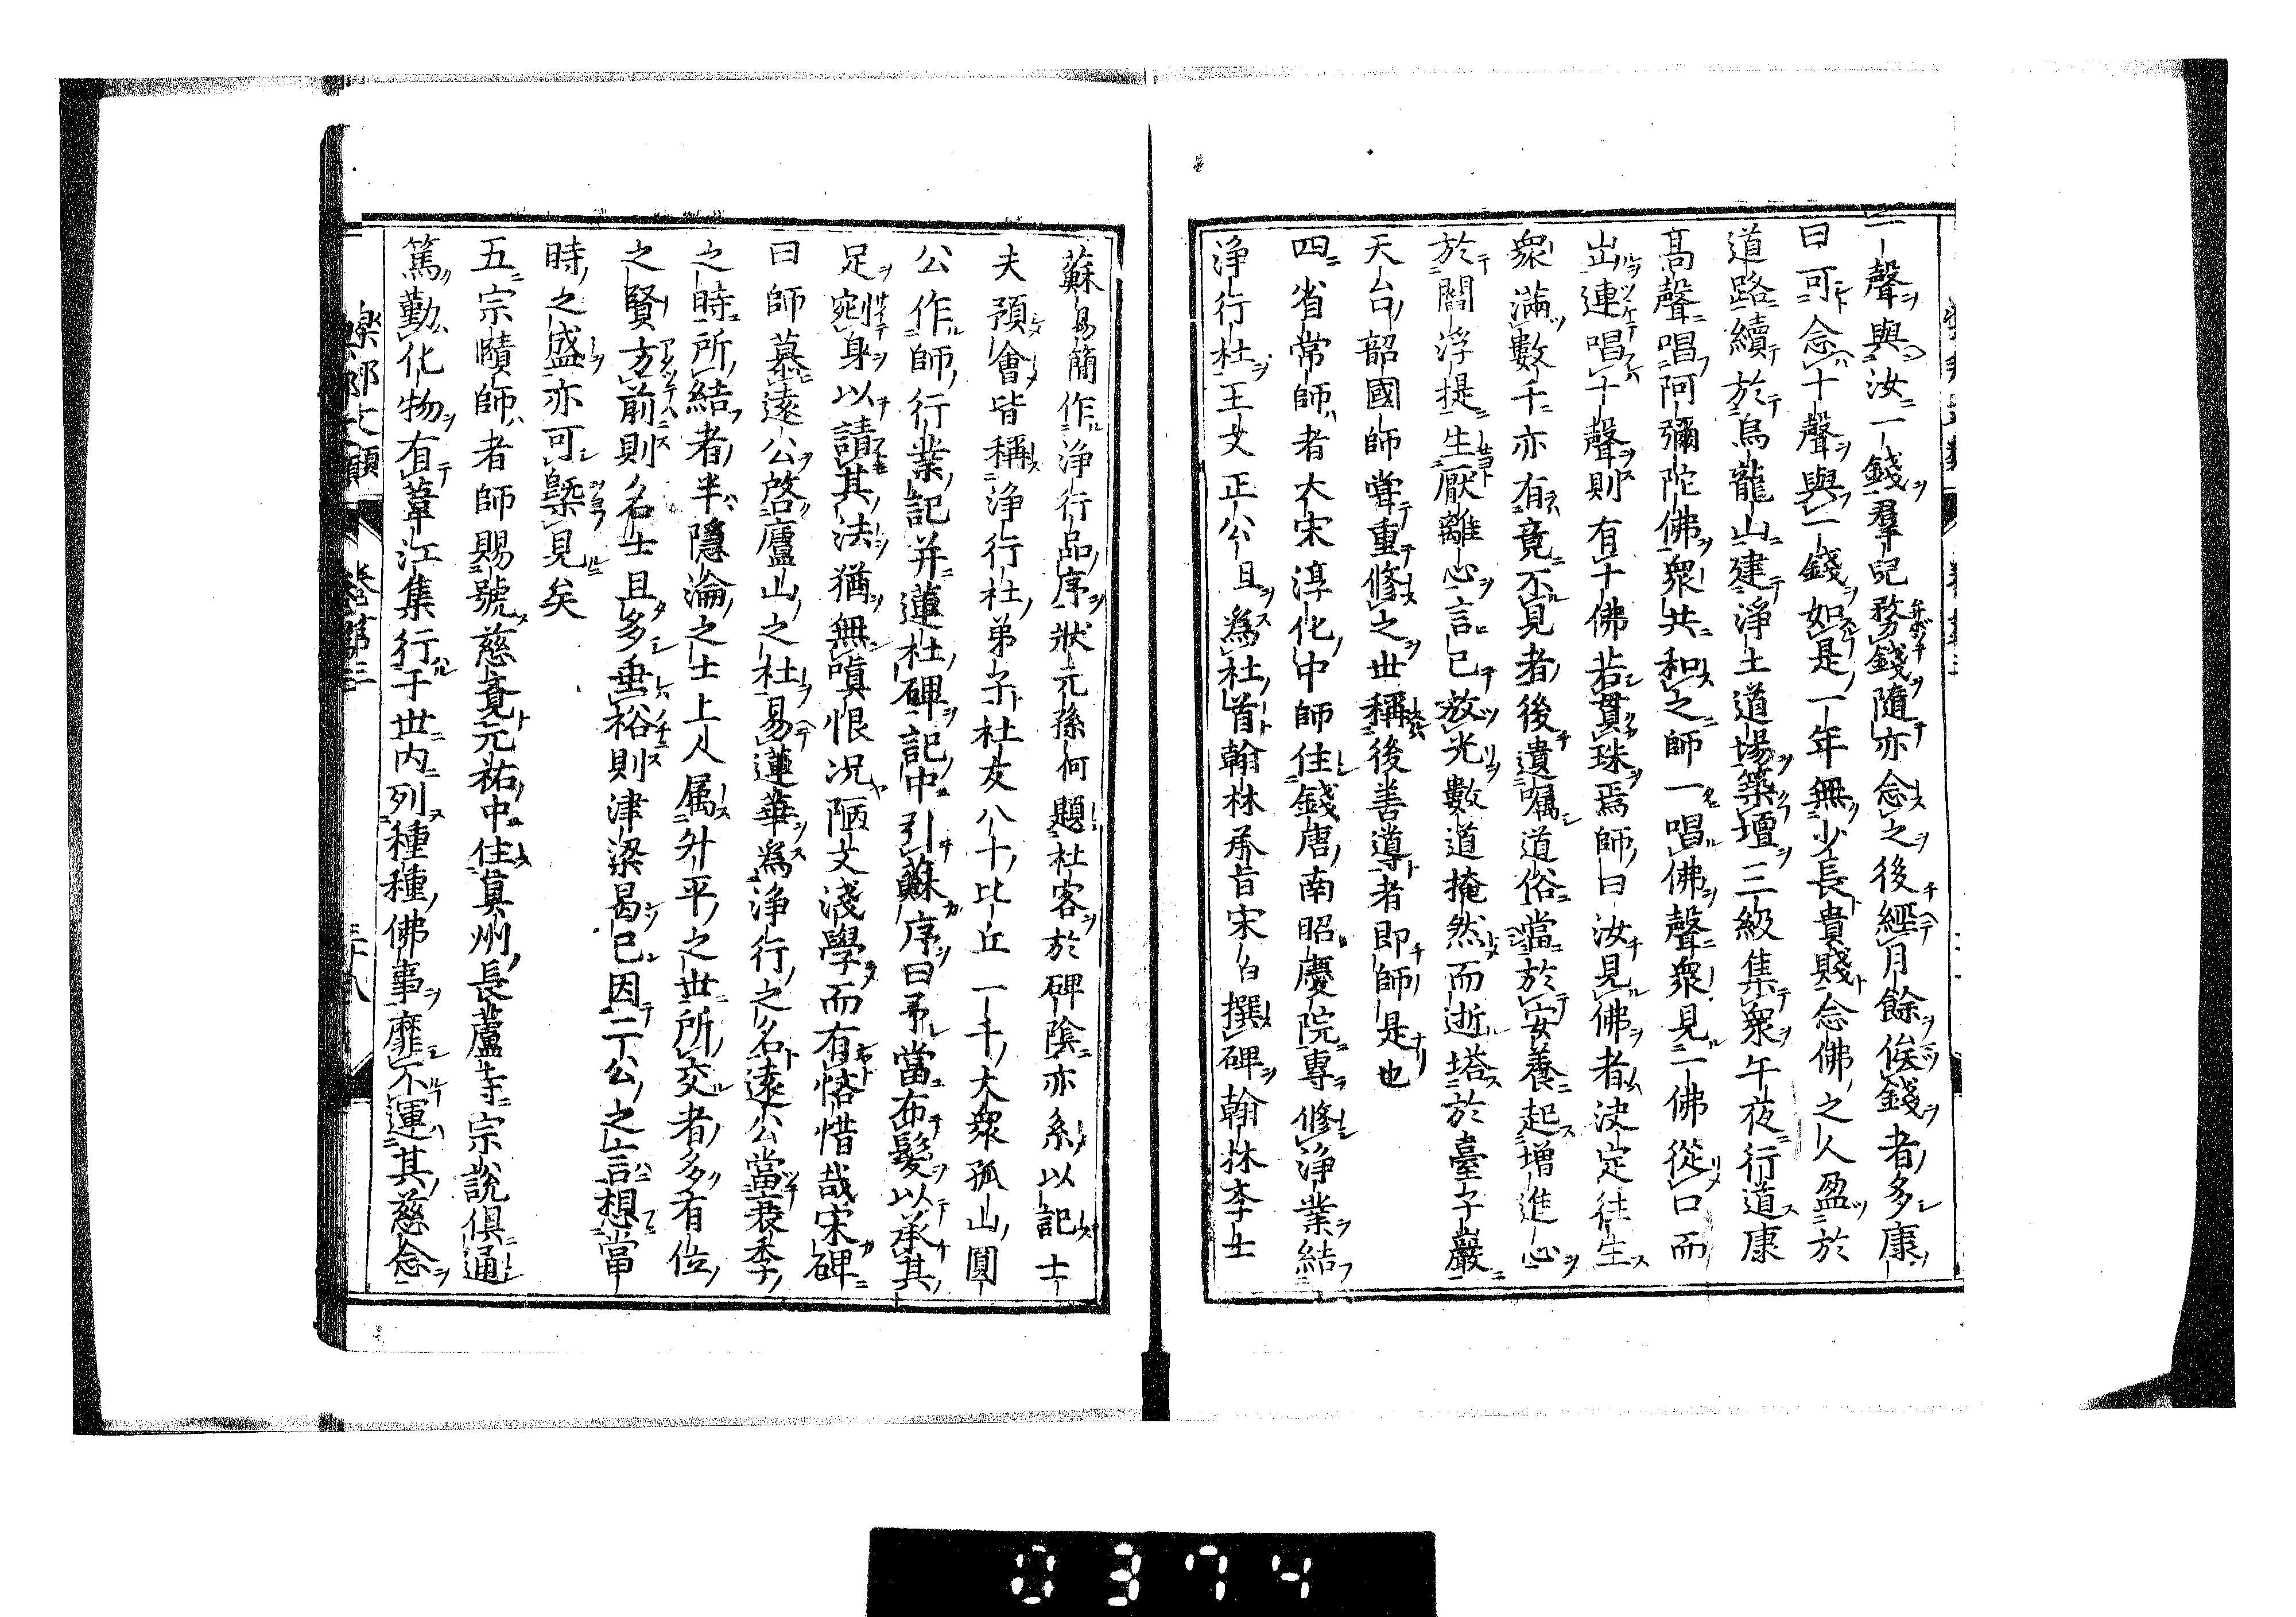 一聲與汝一錢羣兒務錢隨亦念之後經月餘俟錢者多康
曰可念十聲與一錢如是一年無少長貴賤念佛之人盈於
道路續於烏龍山建淨土道場築壇三級集衆午夜行道康
高聲唱阿彌陀佛衆共和之師一唱佛聲衆見一佛從口而
出連唱十聲則有十佛若貫珠焉師曰汝見佛者決定往生
衆滿數千亦有竟不見者後遺囑道俗當於安養起增進心
於閻浮提生厭離心言已放光數道掩然而逝塔於臺子巖
天台韶國師嘗重修之世稱後善導者即師是也
四省常師者大宋淳化中師住錢唐南昭慶院專修淨業結
淨行社王文正公旦爲社首翰林承旨宋白撰碑翰林李士
蘇易簡作淨行品序狀元孫何題社客於碑陰亦系以記士
夫預會皆稱淨行社弟子社友八十比丘一千大衆孤山圓
公作師行業記并蓮社碑記中引蘇序曰予當布髮以承其
足剜身以請其法猶無嗔恨况陋文淺學而有悋惜哉宋碑
曰師慕遠公啓廬山之社易蓮華爲淨行之名遠公當衰季
之時所結者半隱淪之士上人属升平之世所交者多有位
之賢方前則名士且多垂裕則津梁曷已因二公之言想當
時之盛亦可槩見矣
五宗賾師者師賜號慈覺元祐中住真州長蘆寺宗說俱通
篤勤化物有葦江集行于世内列種種佛事靡不運其慈念
樂邦文類
卷第三
0374